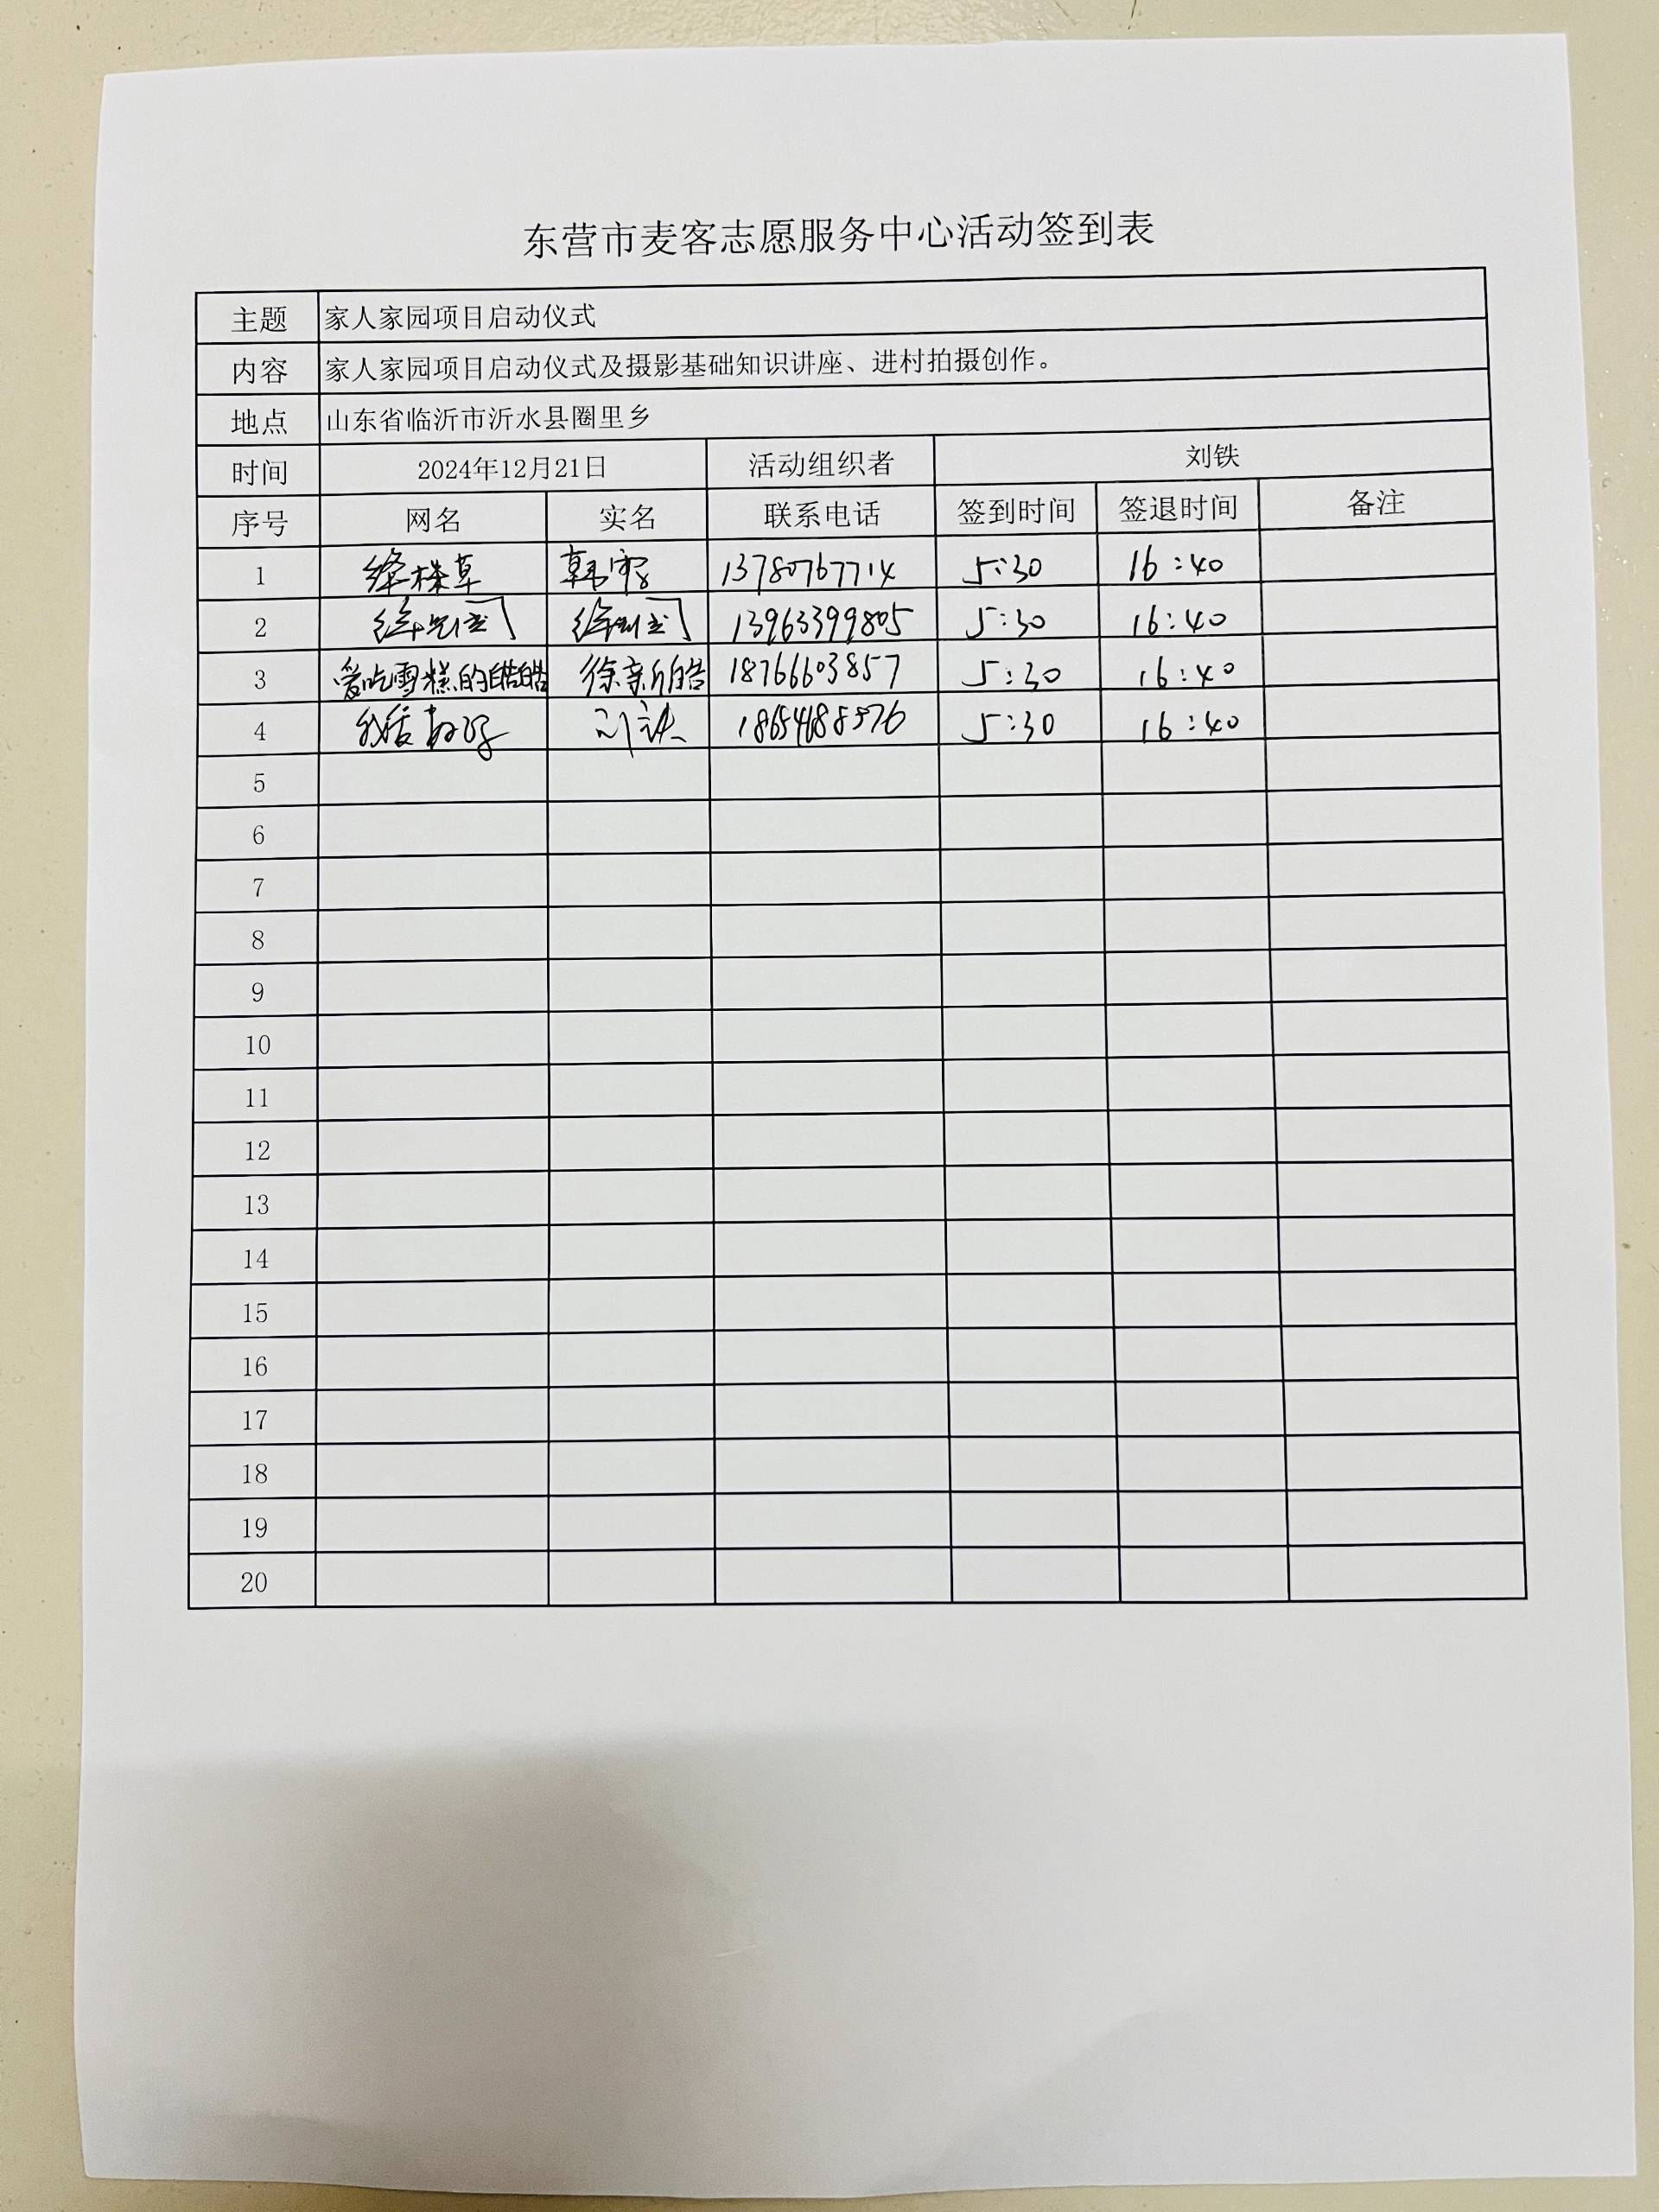 东营市麦客志愿服务中心活动签到表
主题 家人家园项目启动仪式
内容 家人家园项目启动仪式及摄影基础知识讲座、进村拍摄创作。
地点 山东省临沂市沂水县圈里乡
时间 2024年12月21日 活动组织者 刘铁
序号 网名 实名 联系电话 签到时间 签退时间 备注
1 绛株草 韩 13780767714 5:30 16:40
2 13963399805 5:30 16:40
3 爱吃雪糕的皓皓 徐新皓 18766603857 5:30 16:40
4 刘铁 5:30 16:40
5
6
7
8
9
10
11
12
13
14
15
16
17
18
19
20